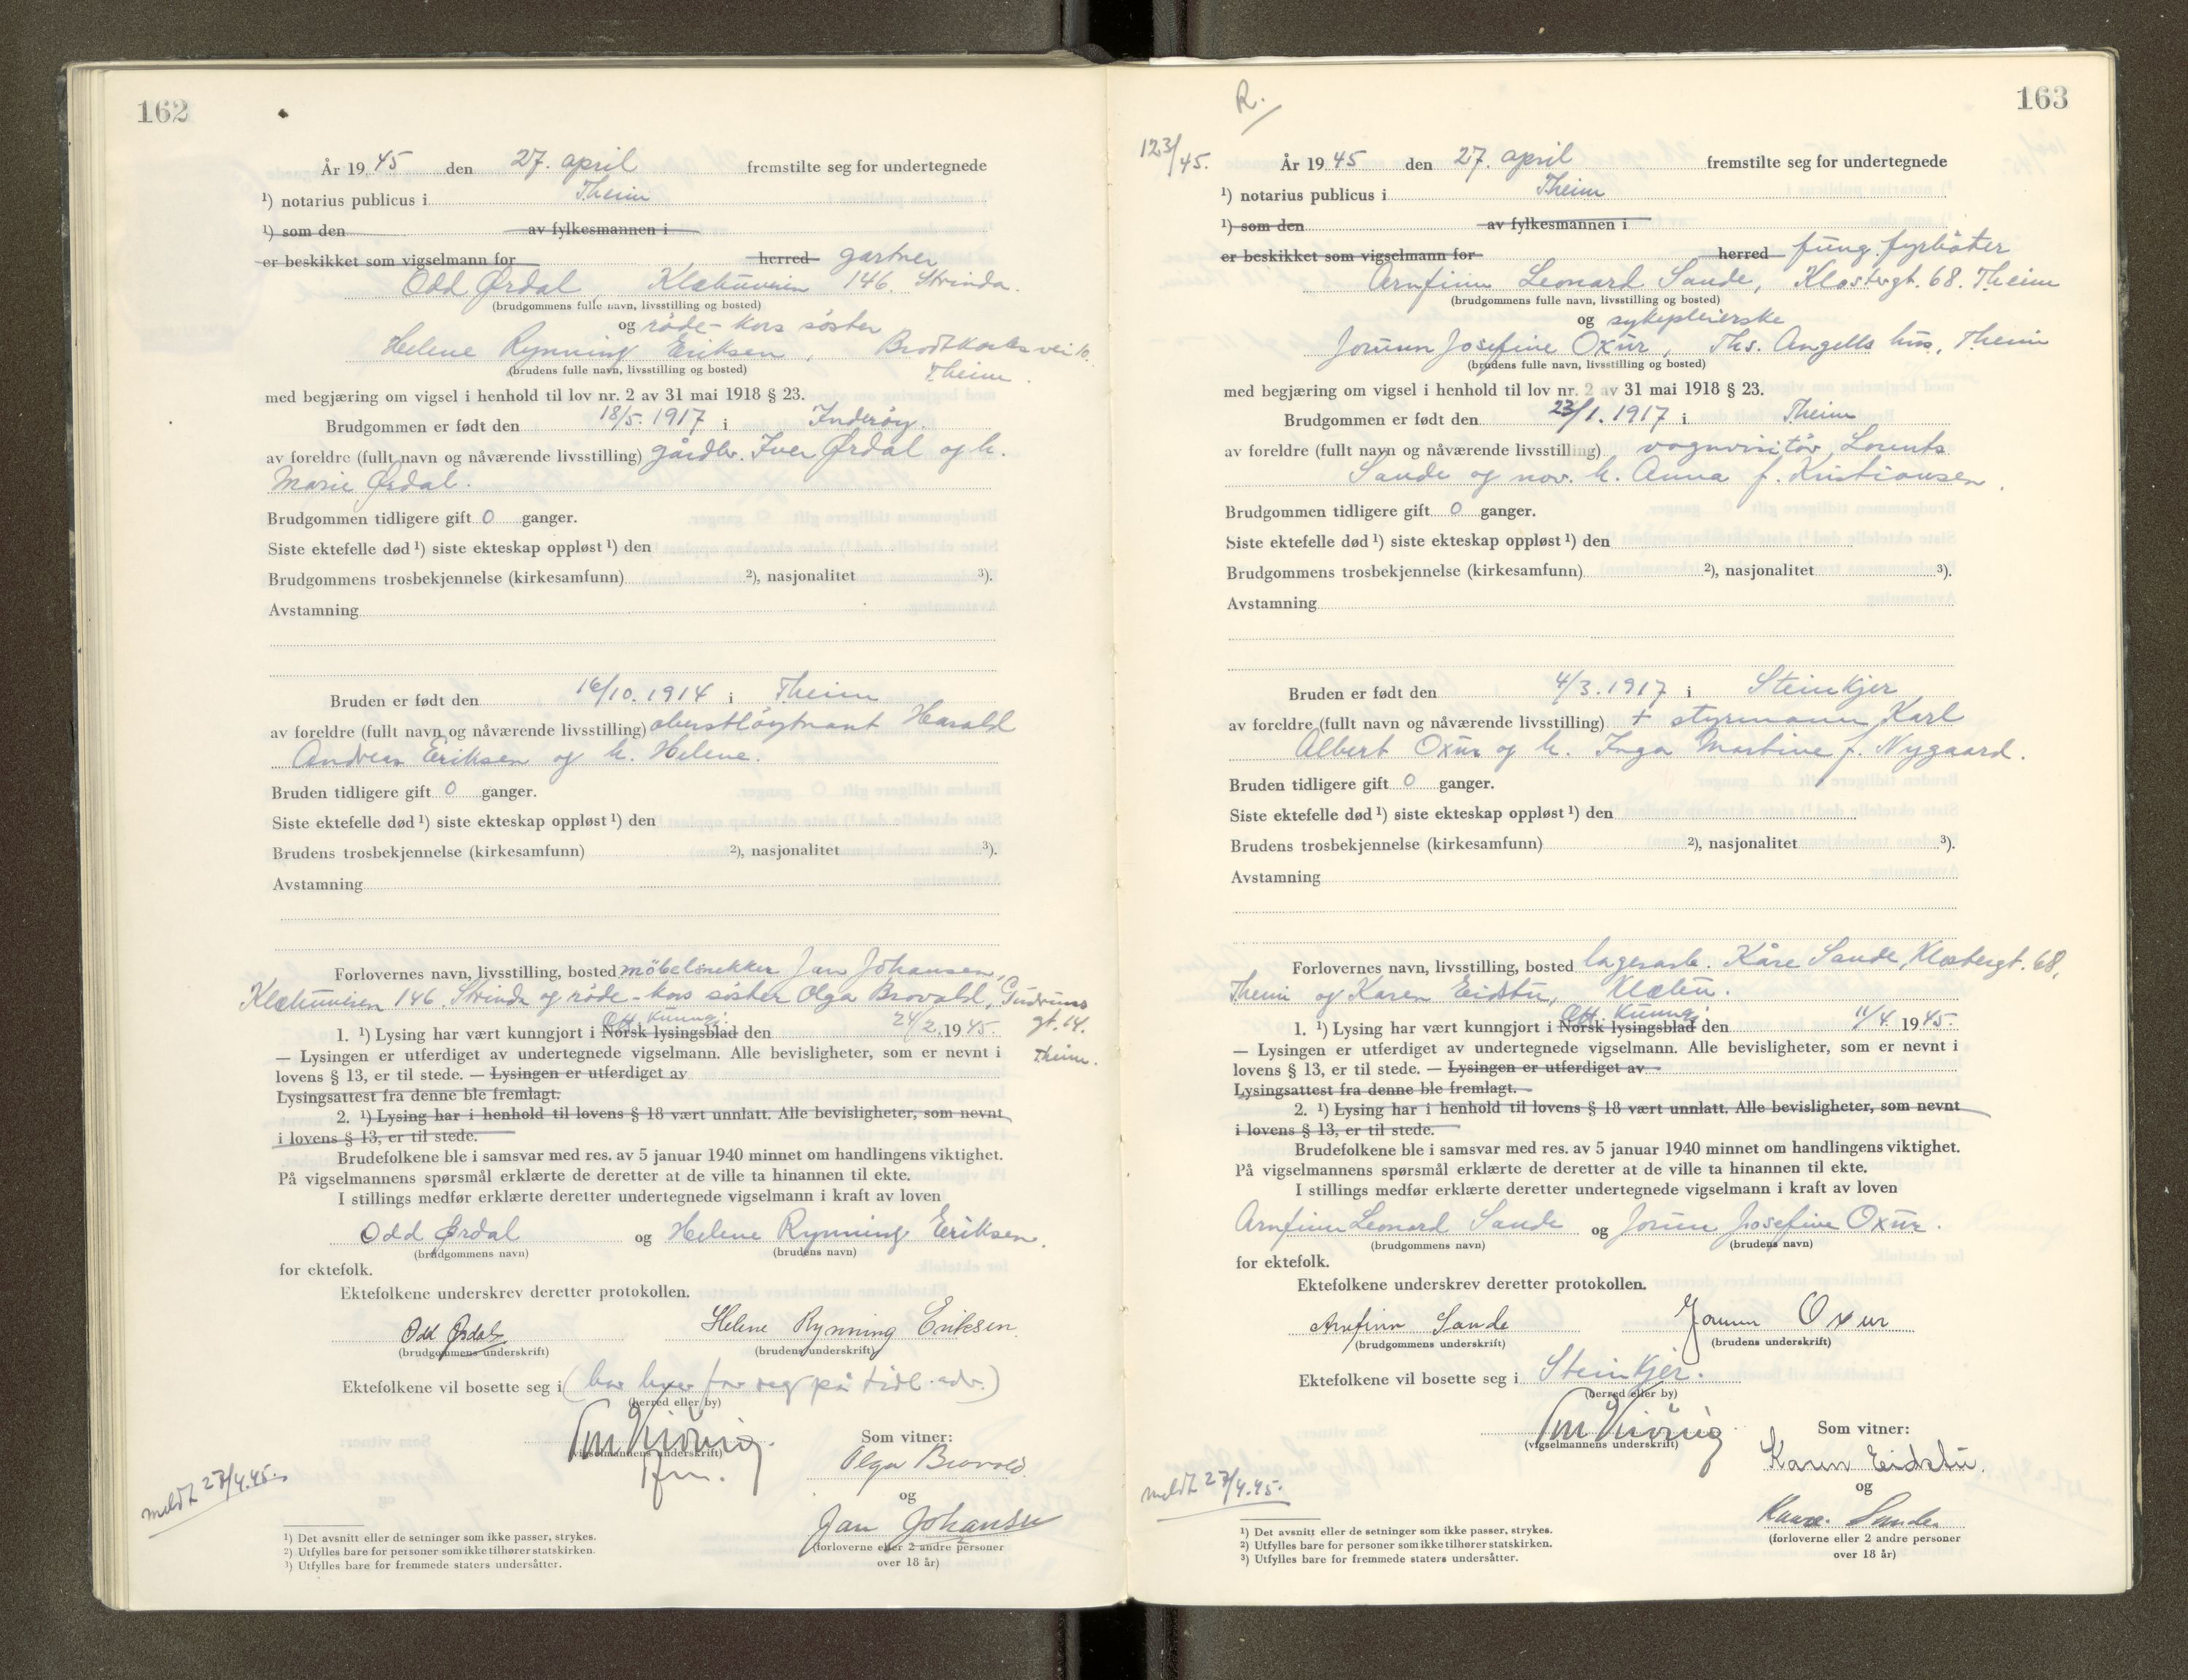 162
År 19 45 den 27. april fremstilte seg for undertegnede
¹) notarius publicus i Theim
¹) som den av fylkesmannen i
er beskikket som vigselmann for herred gartner
Odd Ørdal, Klæbuveien 146. Strinda.
(brudgommens fulle navn, livsstilling og bosted)
og røde-kors söster
Helene Rynning Eriksen, Brodtkorbs vei 10.
(brudens fulle navn, livsstilling og bosted) Theim.
med begjæring om vigsel i henhold til lov nr. 2 av 31 mai 1918 § 23.
Brudgommen er født den 18/5. 1917 i Inderöy.
av foreldre (fullt navn og nåværende livsstilling) gårdbr. Iver Ørdal og h.
Marie Ørdal.
Brudgommen tidligere gift 0 ganger.
Siste ektefelle død ¹) siste ekteskap oppløst ¹) den
Brudgommens trosbekjennelse (kirkesamfunn) ²), nasjonalitet ³).
Avstamning
Bruden er født den 16/10. 1914 i Theim
av foreldre (fullt navn og nåværende livsstilling) oberstlöytnant Harald
Andreas Eriksen og h. Helene.
Bruden tidligere gift 0 ganger.
Siste ektefelle død ¹) siste ekteskap oppløst ¹) den
Brudens trosbekjennelse (kirkesamfunn) ²), nasjonalitet ³).
Avstamning
Forlovernes navn, livsstilling, bosted möbelsnekker Jan Johansen,
Klæbuveien 146. Strinda og röde-kors söster Olga Brovold, Gudruns
gt. 14.
Theim.
Off. Kunngj.
1. ¹) Lysing har vært kunngjort i Norsk lysingsblad den 24/2. 1945.
— Lysingen er utferdiget av undertegnede vigselmann. Alle bevisligheter, som er nevnt i
lovens § 13, er til stede. — Lysingen er utferdiget av
Lysingsattest fra denne ble fremlagt.
2. ¹) Lysing har i henhold til lovens § 18 vært unnlatt. Alle bevisligheter, som nevnt
i lovens § 13, er til stede.
Brudefolkene ble i samsvar med res. av 5 januar 1940 minnet om handlingens viktighet.
På vigselmannens spørsmål erklærte de deretter at de ville ta hinannen til ekte.
I stillings medfør erklærte deretter undertegnede vigselmann i kraft av loven
Odd Ørdal og Helene Rynning Eriksen.
(brudgommens navn) (brudens navn)
for ektefolk.
Ektefolkene underskrev deretter protokollen.
Odd Ørdal Helene Rynning Eriksen.
(brudgommens underskrift) (brudens underskrift)
Ektefolkene vil bosette seg i (bor hver for seg på tidl. adr.)
(herred eller by)
(vigselmannens underskrift)
Som vitner:
Olga Brovold
og
Jan Johansen
(forloverne eller 2 andre personer
over 18 år)
meldt 27/4.45.
¹) Det avsnitt eller de setninger som ikke passer, strykes.
²) Utfylles bare for personer som ikke tilhører statskirken.
³) Utfylles bare for fremmede staters undersåtter.
163
R.
123/45.
År 19 45 den 27. april fremstilte seg for undertegnede
¹) notarius publicus i Theim
¹) som den av fylkesmannen i
er beskikket som vigselmann for herred fung. fyrböter
Arnfinn Leonard Sande, Klostergt. 68. Theim
(brudgommens fulle navn, livsstilling og bosted)
og sykepleierske
Jorunn Josefine Oxur, Ths. Angells hus, Theim
(brudens fulle navn, livsstilling og bosted)
med begjæring om vigsel i henhold til lov nr. 2 av 31 mai 1918 § 23.
Brudgommen er født den 23/1. 1917 i Theim
av foreldre (fullt navn og nåværende livsstilling) vognvisitör Lorents
Sande og nov. h. Anna f. Kristiansen.
Brudgommen tidligere gift 0 ganger.
Siste ektefelle død ¹) siste ekteskap oppløst ¹) den
Brudgommens trosbekjennelse (kirkesamfunn) ²), nasjonalitet ³).
Avstamning
Bruden er født den 4/3. 1917 i Steinkjer
av foreldre (fullt navn og nåværende livsstilling) + styrmann Karl
Albert Oxur og h. Inga Martine f. Nygaard.
Bruden tidligere gift 0 ganger.
Siste ektefelle død ¹) siste ekteskap oppløst ¹) den
Brudens trosbekjennelse (kirkesamfunn) ²), nasjonalitet ³).
Avstamning
Forlovernes navn, livsstilling, bosted lagerarb. Kåre Sande, Klostergt. 68,
Theim og Karen Eidstu, Klæbu.
Off. Kunngj.
1. ¹) Lysing har vært kunngjort i Norsk lysingsblad den 11/4. 1945.
— Lysingen er utferdiget av undertegnede vigselmann. Alle bevisligheter, som er nevnt i
lovens § 13, er til stede. — Lysingen er utferdiget av
Lysingsattest fra denne ble fremlagt.
2. ¹) Lysing har i henhold til lovens § 18 vært unnlatt. Alle bevisligheter, som nevnt
i lovens § 13, er til stede.
Brudefolkene ble i samsvar med res. av 5 januar 1940 minnet om handlingens viktighet.
På vigselmannens spørsmål erklærte de deretter at de ville ta hinannen til ekte.
I stillings medfør erklærte deretter undertegnede vigselmann i kraft av loven
Arnfinn Leonard Sande og Jorunn Josefine Oxur.
(brudgommens navn) (brudens navn)
for ektefolk.
Ektefolkene underskrev deretter protokollen.
Arnfinn Sande Jorunn Oxur
(brudgommens underskrift) (brudens underskrift)
Ektefolkene vil bosette seg i Steinkjer.
(herred eller by)
(vigselmannens underskrift)
Som vitner:
Karen Eidstu.
og
Kaare Sande
(forloverne eller 2 andre personer
over 18 år)
meldt 27/4.45.
¹) Det avsnitt eller de setninger som ikke passer, strykes.
²) Utfylles bare for personer som ikke tilhører statskirken.
³) Utfylles bare for fremmede staters undersåtter.